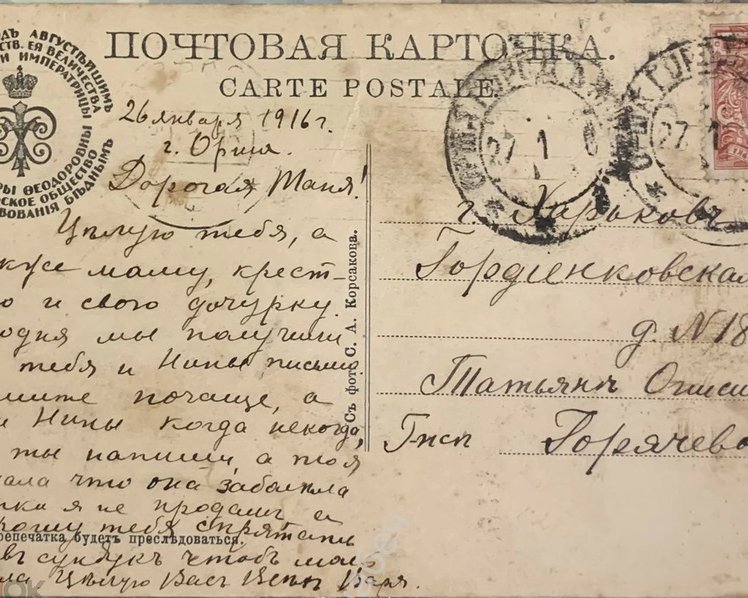 ПОЧТОВАЯ КАРТОЧКА.
CARTE POSTALE.
АВГУСТѢЙШИМЪ
ЕЯ ВЕЛИЧЕСТВА
И ИМПЕРАТРИЦЫ
ѲЕОДОРОВНЫ
ОБЩЕСТВО
БѢДНЫМЪ
26 января 1916 г.
г. Орша.
Дорогая Таня!
Цѣлую тебя, а
маму, крест-
и свою дочурку.
мы получили
тебя и Нины письмо
почаще, а
Нины когда некогда,
ты напиши, а то я
что она заболѣла
я не продаши а
прошу тебя спрятать
въ сундукъ чтобъ моль
Цѣлую Васъ Всѣхъ Варя.
репечатка будетъ преслѣдоваться.
Съ фот. С. А. Корсакова.
27 1
27 1
г. Харьковъ
Гордіенковская
д. N 18
Татьянѣ
Гжѣ Горячево